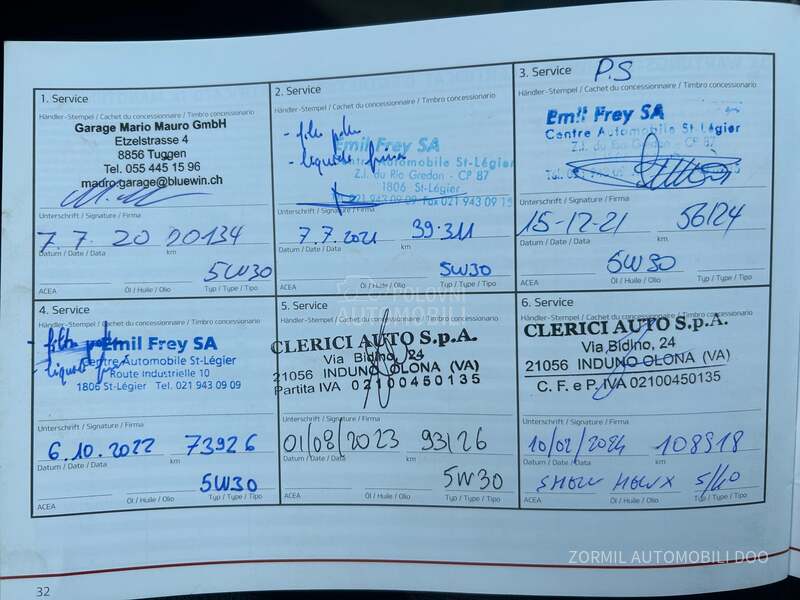 1. Service
Händler-Stempel / Cachet du concessionnaire / Timbro concessionario
Garage Mario Mauro GmbH
Etzelstrasse 4
8856 Tuggen
Tel. 055 445 15 96
madro.garage@bluewin.ch
Unterschrift / Signature / Firma
7.7.20 20134
Datum / Date / Data km
5W30
ACEA Öl / Huile / Olio Typ / Type / Tipo
2. Service
Händler-Stempel / Cachet du concessionnaire / Timbro concessionario
Emil Frey SA
Centre Automobile St-Légier
Z.I. du Rio Gredon - CP 87
1806 St-Légier
021 943 09 09 Fax 021 943 09 15
Unterschrift / Signature / Firma
7.7.2021 39.311
Datum / Date / Data km
5W30
ACEA Öl / Huile / Olio Typ / Type / Tipo
3. Service P.S
Händler-Stempel / Cachet du concessionnaire / Timbro concessionario
Emil Frey SA
Centre Automobile St-Légier
Z.I. du Rio Gredon - CP 87
Unterschrift / Signature / Firma
15-12-21 56124
Datum / Date / Data km
5W30
ACEA Öl / Huile / Olio Typ / Type / Tipo
4. Service
Händler-Stempel / Cachet du concessionnaire / Timbro concessionario
Emil Frey SA
Centre Automobile St-Légier
Route Industrielle 10
1806 St-Légier Tel. 021 943 09 09
Unterschrift / Signature / Firma
6.10.2022 73926
Datum / Date / Data km
5W30
ACEA Öl / Huile / Olio Typ / Type / Tipo
5. Service
Händler-Stempel / Cachet du concessionnaire / Timbro concessionario
CLERICI AUTO S.p.A.
Via Bidino, 24
21056 INDUNO OLONA (VA)
Partita IVA 02100450135
Unterschrift / Signature / Firma
01/08/2023 93126
Datum / Date / Data km
5W30
ACEA Öl / Huile / Olio Typ / Type / Tipo
6. Service
Händler-Stempel / Cachet du concessionnaire / Timbro concessionario
CLERICI AUTO S.p.A.
Via Bidino, 24
21056 INDUNO OLONA (VA)
C. F. e P. IVA 02100450135
Unterschrift / Signature / Firma
10/02/2024 108918
Datum / Date / Data km
5/40
ACEA Öl / Huile / Olio Typ / Type / Tipo
POLOVNI
AUTOMOBILI
32
ZORMIL AUTOMOBILI DOO